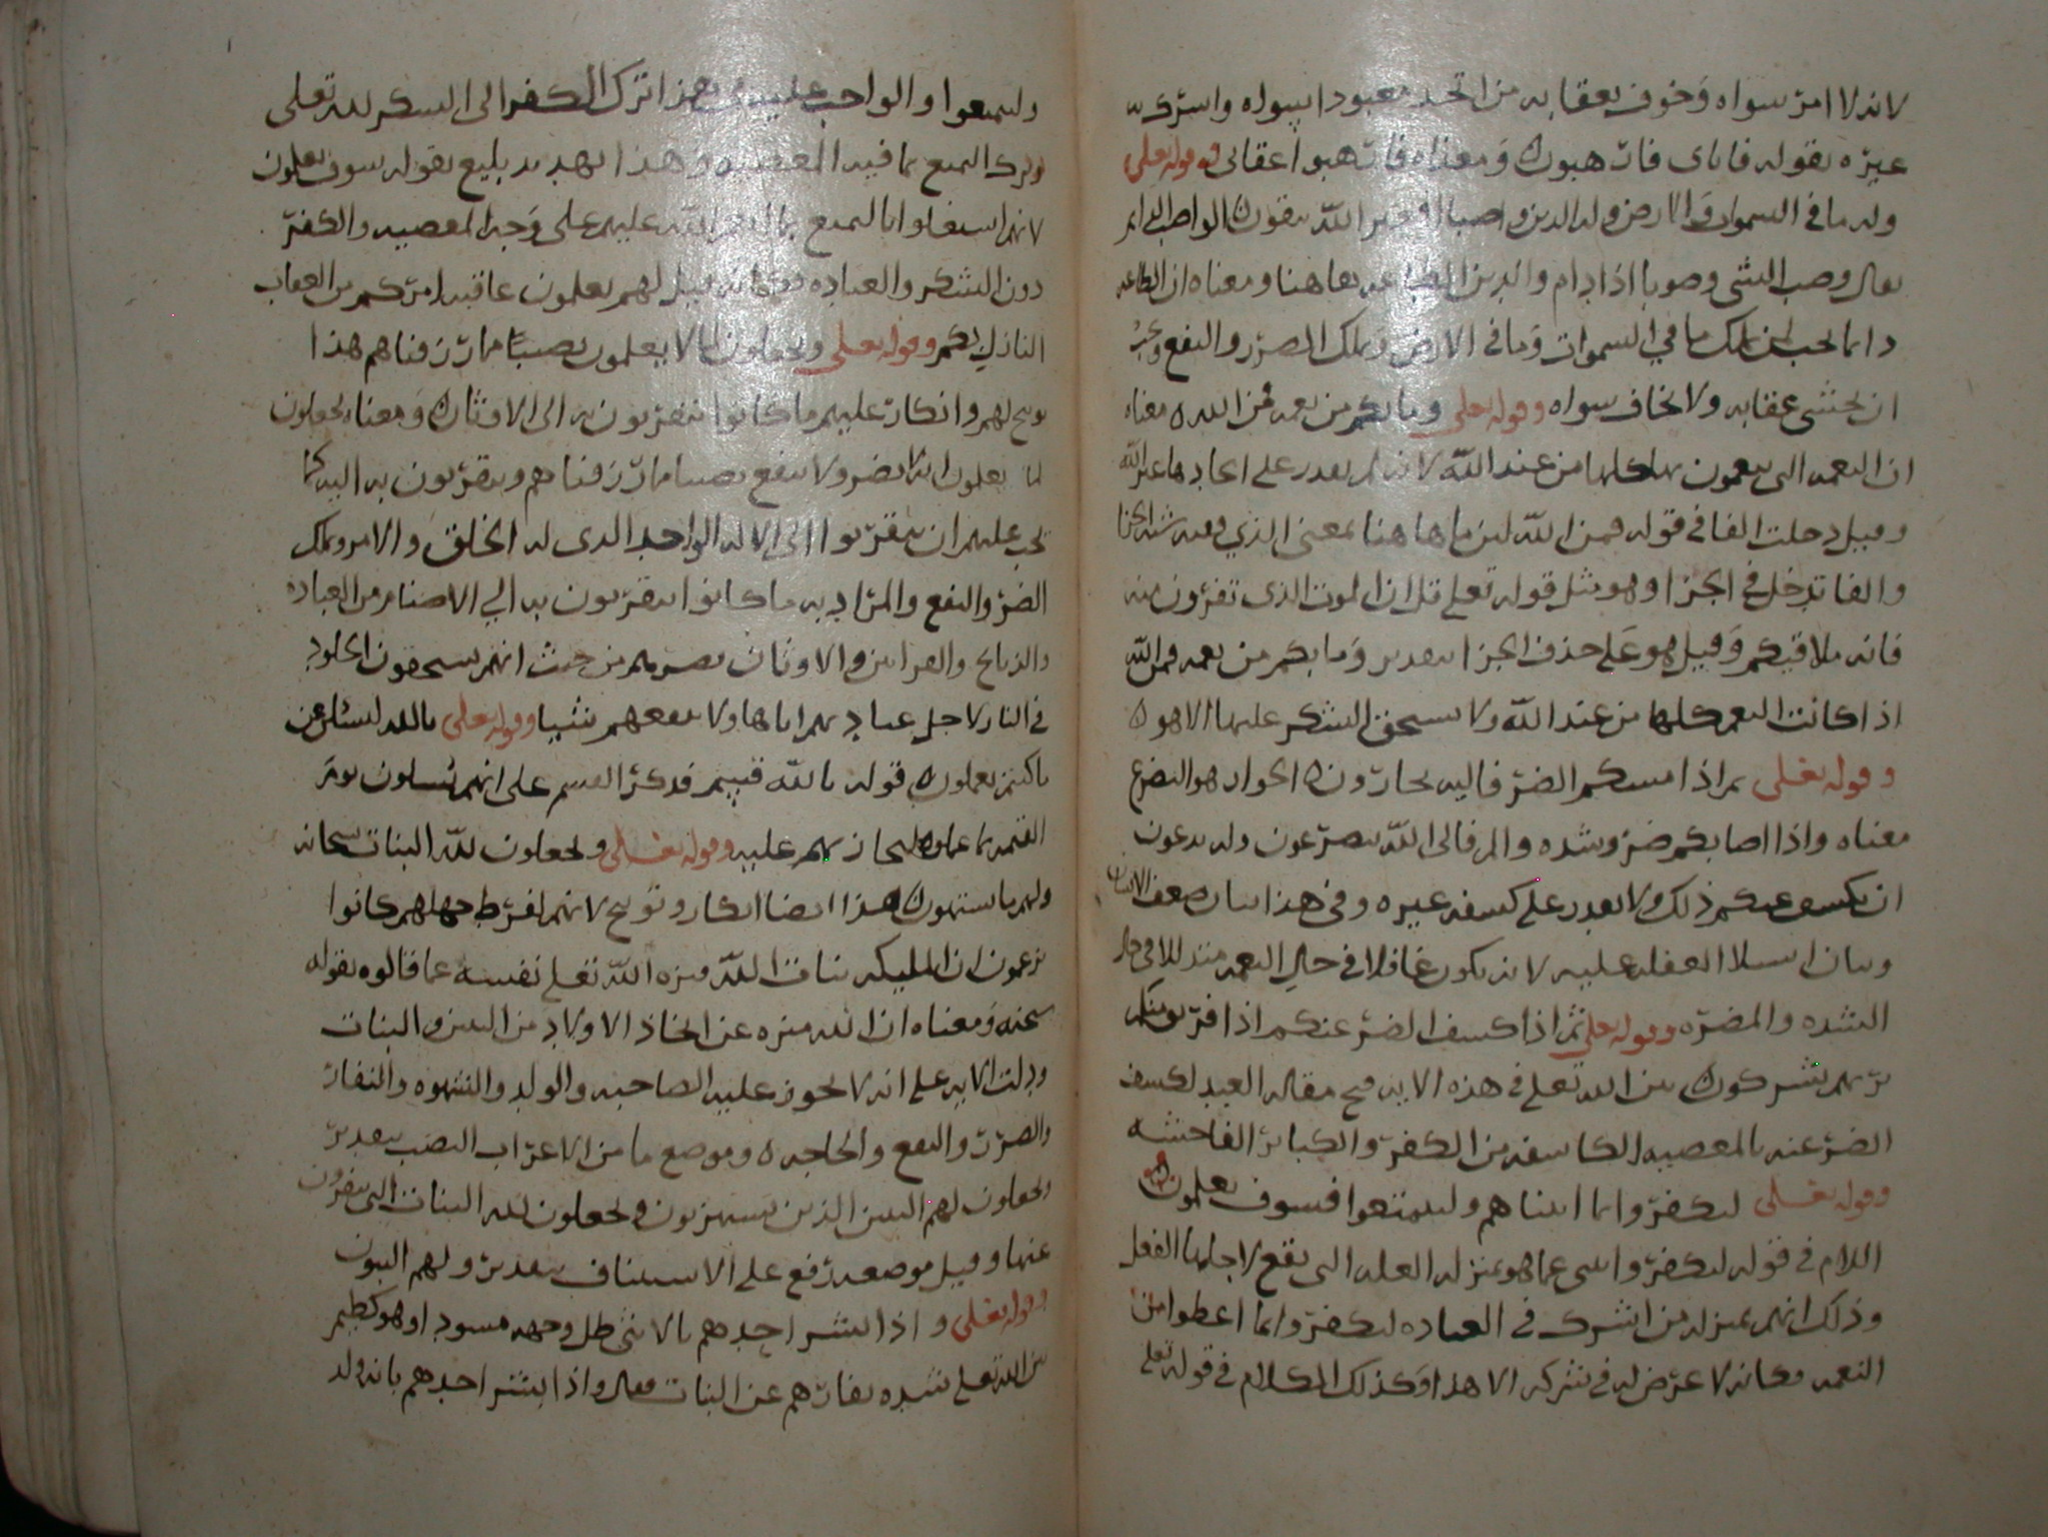 لانه لا امر سواه وخوف بعقابه من اتخد معبودا سواه واشرك به
غيره بقوله فاياى فارهبون ومعناه فارهبوا عقابى وقوله تعلى
وله ما فى السموات والارض وله الدين واصبا افغير الله تتقون الواصب الدايم
يعال وصب الشى وصوبا اذا دام والدين الطاعه هاهنا ومعناه ان الطاعه
دايما تجب لمن يملك ما في السموات وما فى الارض ويملك الضرر والنفع
ان يخشى عقابه ولا يخاف سواه وقوله تعلى وما بكم من نعمه فمن الله معناه
ان النعمه التى تنعمون بها كلها من عند الله لانه لم يقدر على ايجادها غير الله
وقيل دخلت الفا فى قوله فمن الله لان ما هاهنا بمعنى الذي وفيه شبه الجزا
والفا تدخل في الجزا وهو مثل قوله تعلى قل ان الموت الذى تفرون منه
فانه ملاقيكم وقيل هو على حذف الجزا تقديره وما بكم من نعمه فمن الله
اذا كانت النعم كلها من عند الله ولا يستحق الشكر عليها الا هو
وقوله تعلى ثم اذا مسكم الضر فاليه تجارون الجوار هو التضرع
معناه واذا اصابكم ضر وشده والم فالى الله تتضرعون وله تدعون
ان يكشف عنكم ذلك ولا يقدر على كشفه غيره وفى هذا بيان ضعف الانسان
وبيان استيلا الغفله عليه لانه يكون غافلا فى حال النعمه متذللا فى حال
الشده والمضره وقوله تعلى ثم اذا كشف الضر عنكم اذا فريق منكم
بربهم يشركون بين الله تعلى فى هذه الايه قبح مقاله العبد لكشف
الضر عنه بالمعصيه من الكفر والكباير الفاحشه
وقوله تعلى ليكفروا بما اتيناهم وليتمتعوا فسوف يعلمون
اللام فى قوله ليكفروا هو بمنزله العله التى يقع لاجلها الفعل
وذلك انهم بمنزله من اشرك فى العباده ليكفروا بما اعطوا من
النعمه وكانه لا غرض له فى شركه الا هذا وكذلك الكلام فى قوله تعلى
وليتمتعوا والواجب عليهم فى هذا ترك الكفر الى الشكر لله تعلى
وترك التمتع بما فيه المعصيه وهذا تهديد بليغ بقوله سوف تعلمون
لانهم اشتغلوا بالتمتع بما انعم الله عليهم على وجه المعصيه والكفر
دون الشكر والعباده فكانه قيل لهم تعلمون عاقبه امركم من العقاب
النازل بكم وقوله تعلى ويجعلون لما لا يعلمون نصيبا مما رزقناهم هذا
توبيخ لهم وانكار عليهم ما كانوا يتقربون به الى الاوثان ومعناه يجعلون
لما يعلمون انه لا يضر ولا ينفع نصيبا مما رزقناهم ويتقربون به اليه كما
يجب عليهم ان يتقربوا الى الاله الواحد الدى له الخلق والامر ويملك
الضر والنفع والمراد به ما كانوا يتقربون به الي الاصنام من العباده
والذبايح والقرابين والاوثان تضرهم من حيث انهم يستحقون الخلود
فى النار لاجل عبادتهم اياها ولا تنفعهم شيا وقوله تعلى تالله لتسئلن عن
ما كنتم تعملون قوله تالله قسم فدكر القسم على انهم يسلون يوم
القيمه بما عملوه ليجازيهم عليه وقوله تعلى ويجعلون لله البنات سبحانه
ولهم ما يشتهون هذا ايضا انكار وتوبيخ لانهم لفرط جهلهم كانوا
يزعمون ان المليكه بنات الله فنزه الله تعلى نفسه عما قالوه بقوله
سبحنه ومعناه ان الله منزه عن اتخاذ الاولاد من البنين والبنات
ودلت الايه على انه لا تجوز عليه الصاحبه والولد والشهوه والنفار
والضرر والنفع والحاجه وموضع ما من الاعراب النصب تقديره
يجعلون لهم البنين الذين يشتهون ويجعلون لله البنات التى ينفرون
عنها وقيل موضعه رفع على الاستيناف تقديره ولهم البنون
وقوله تعلى واذا بشر احدهم بالانثى ظل وجهه مسودا وهو كظيم
بين الله تعلى شده نفارهم عن البنات فقال واذا بشر احدهم بانه ولد